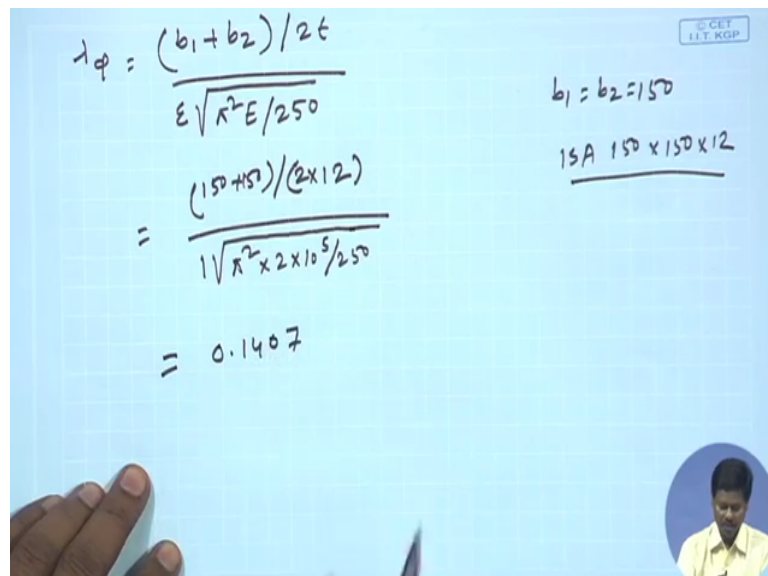 © CET
I.I.T. KGP
λφ = (b₁ + b₂) / 2t
ε√π²E/250
b₁ = b₂ = 150
ISA 150 x 150 x 12
= (150+150)/(2x12)
1√π² x 2 x 10⁵/250
= 0.1407